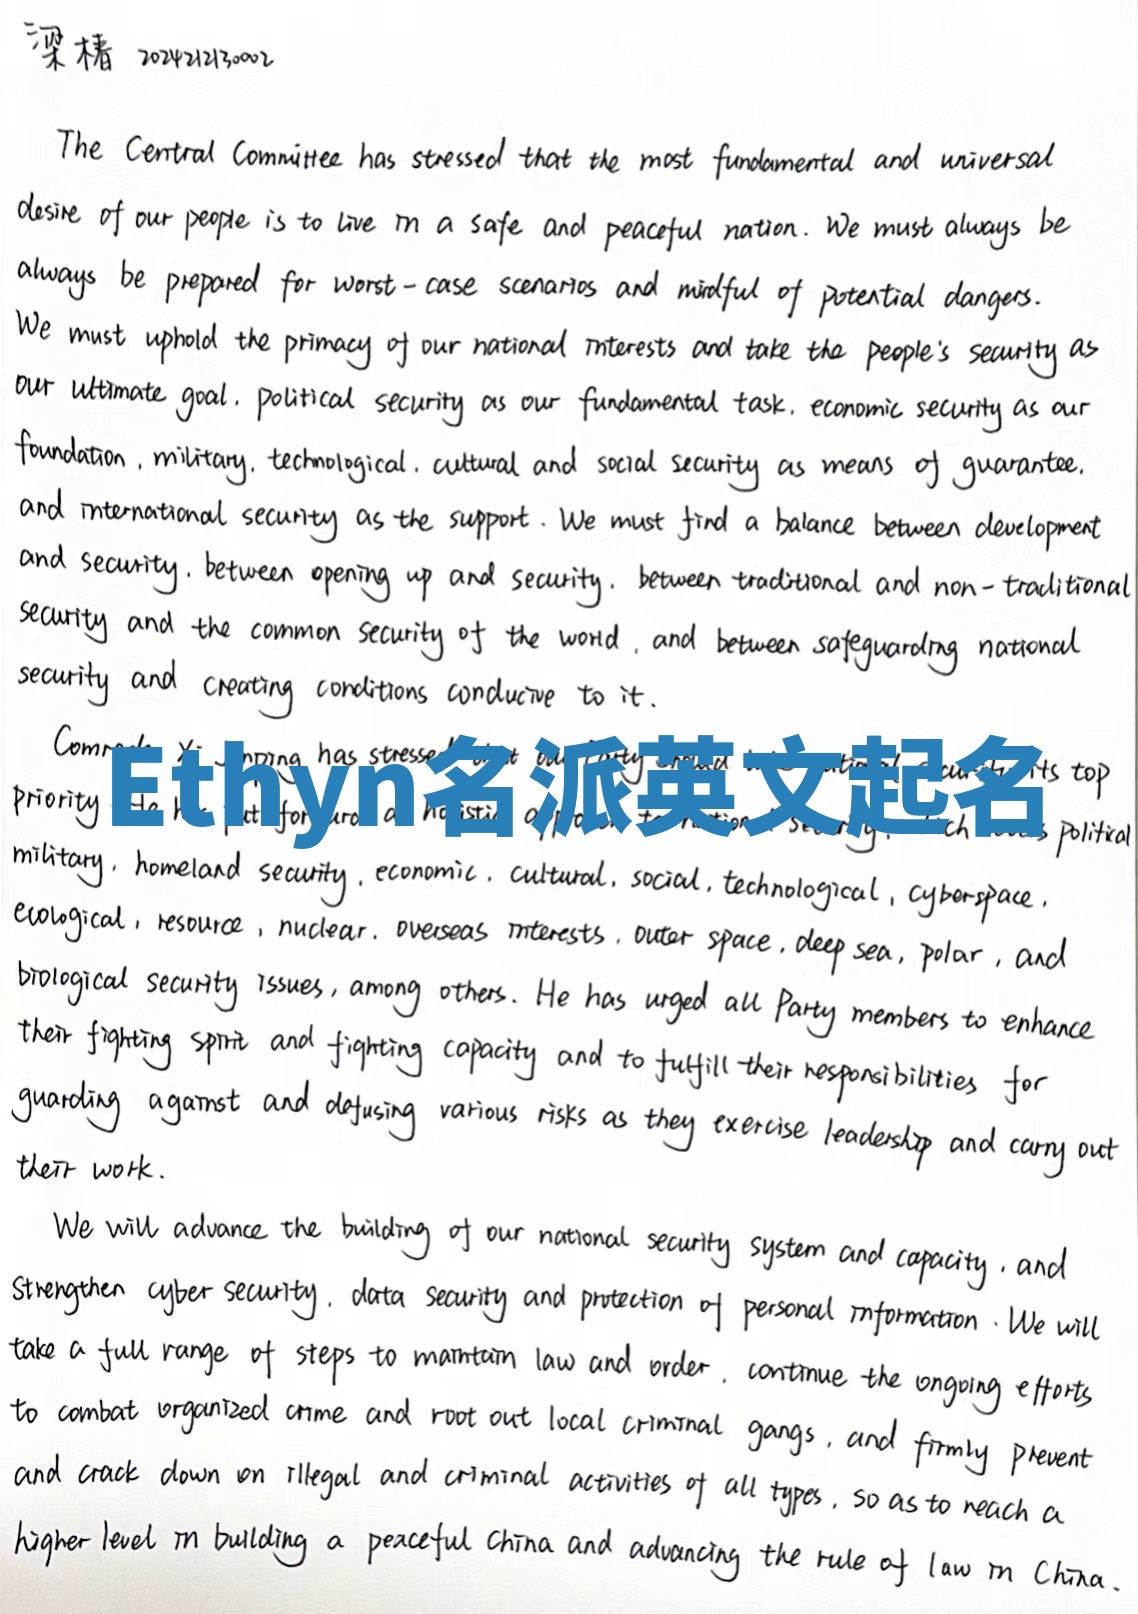 梁椿 2024212130002
The Central Committee has stressed that the most fundamental and universal
desire of our people is to live in a safe and peaceful nation. We must always be
always be prepared for worst-case scenarios and mindful of potential dangers.
We must uphold the primacy of our national interests and take the people's security as
our ultimate goal, political security as our fundamental task, economic security as our
foundation, military, technological, cultural and social security as means of guarantee,
and international security as the support. We must find a balance between development
and security, between opening up and security, between traditional and non-traditional
security and the common security of the world, and between safeguarding national
security and creating conditions conducive to it.
has stressed its top
Ethyn名派英文起名
priority political
military, homeland security, economic, cultural, social, technological, cyberspace,
ecological, resource, nuclear, overseas interests, outer space, deep sea, polar, and
biological security issues, among others. He has urged all Party members to enhance
their fighting spirit and fighting capacity and to fulfill their responsibilities for
guarding against and defusing various risks as they exercise leadership and carry out
their work.
We will advance the building of our national security system and capacity, and
strengthen cyber security, data security and protection of personal information. We will
take a full range of steps to maintain law and order, continue the ongoing efforts
to combat organized crime and root out local criminal gangs, and firmly prevent
and crack down on illegal and criminal activities of all types, so as to reach a
higher level in building a peaceful China and advancing the rule of law in China.